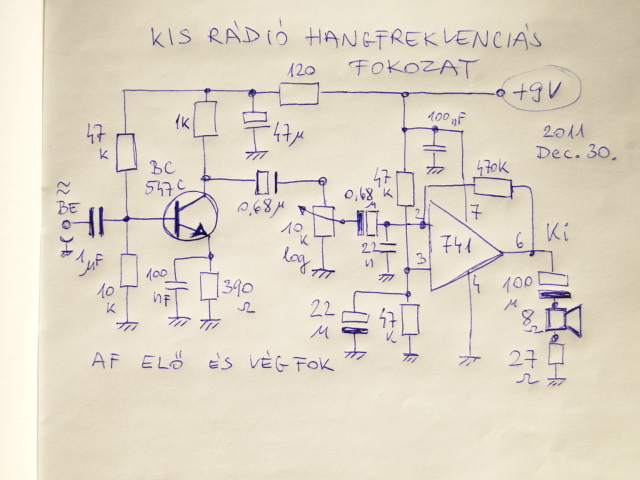 KIS RÁDIÓ HANGFREKVENCIÁS
FOKOZAT
120
+9V
1K
47µ
100nF
2011
Dec. 30.
47
K
BC
547C
47
K
470K
≈
BE
0,68µ
0,68
µ
2
7
10
K
log
22
n
741
6
Ki
3
4
1µF
10
K
100
nF
390
Ω
22
µ
47
K
100
µ
8
Ω
27
Ω
AF ELŐ ÉS VÉGFOK